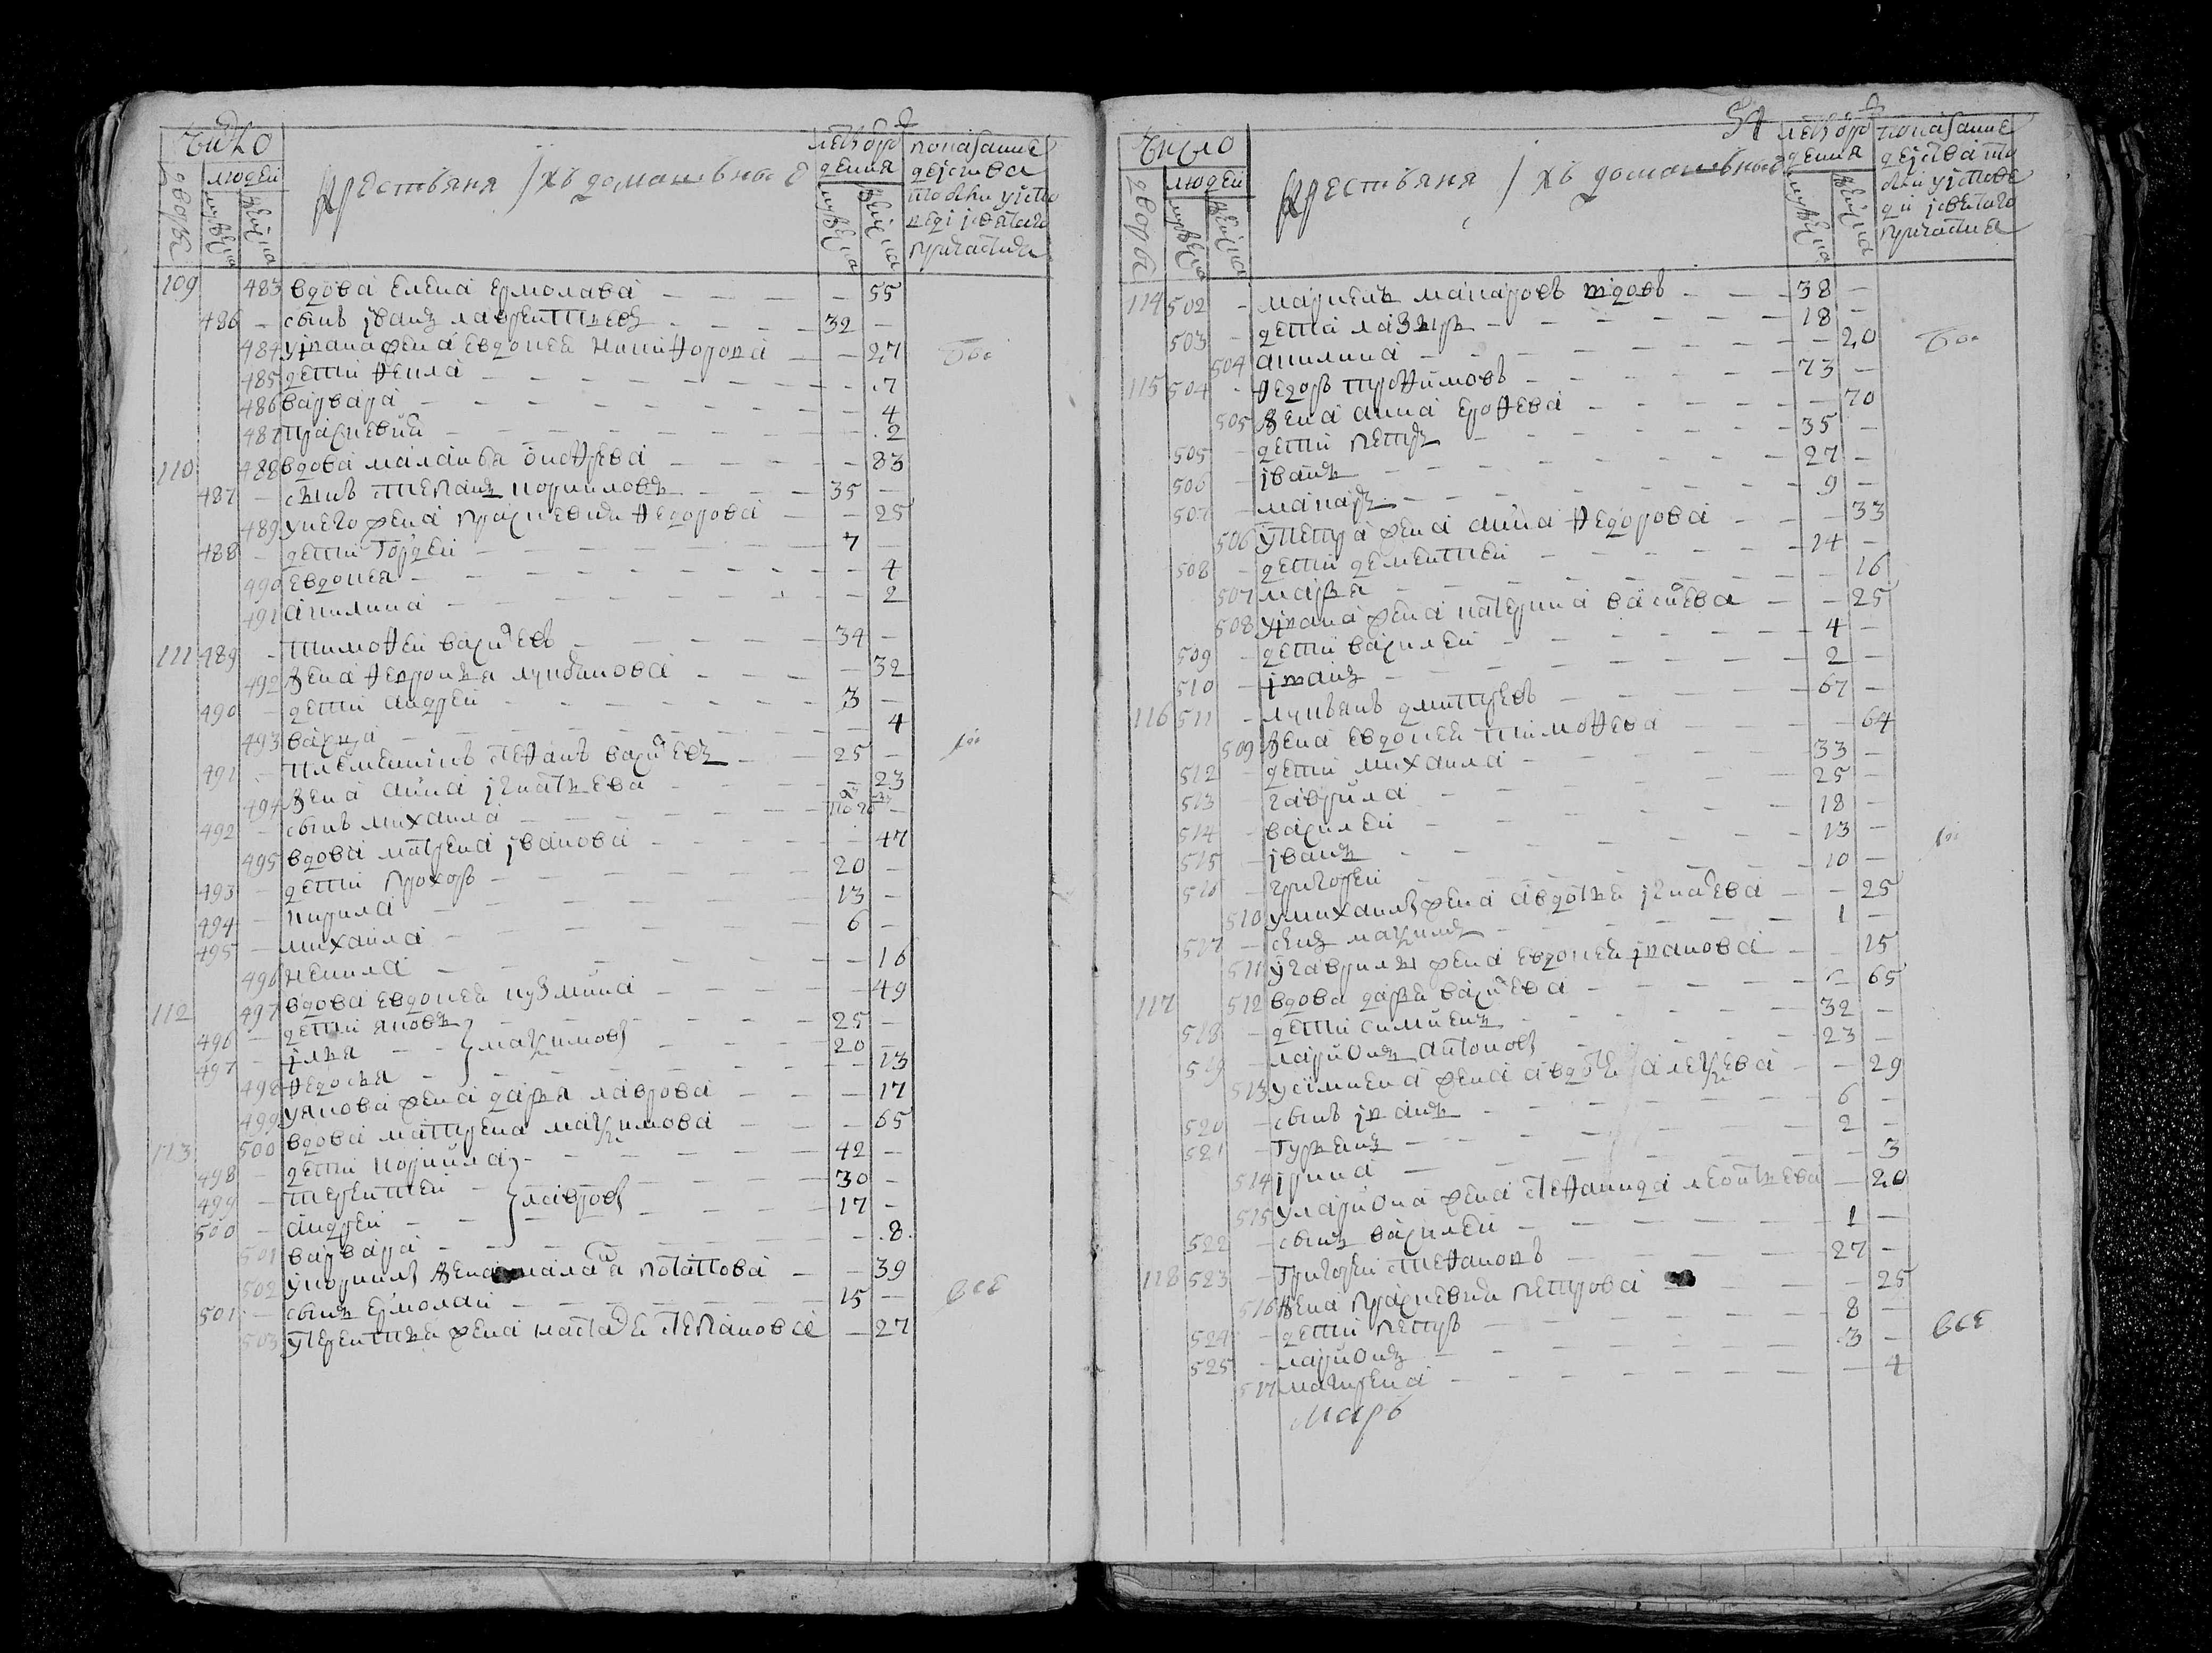 Число
дворовъ
людей
мужеска
женска
крестьяня іхъ домашьные
лѣтъ отро
дения
мужеска
женска
показание
действа
109 483 вдова елена ермолава 55
486 сынъ іванъ лаврентиевъ 32
484 уівана жена евдокея никифорова 27
485 дети фекла 7
486 варвара 4
487 прасковия 2
110 488 вдова маланья онофрева 83
487 сынъ степанъ корниловъ 35
489 унего жена прасковия федорова 25
488 дети гордеи 7
490 евдокея 4
491 акилина 2
111 489 тимофеи васильевъ 34
492 жена феврония лукьянова 32
490 дети андреи 3
493 васиса 4
491 племенникъ стефанъ васильевъ 25
494 жена анна ігнатьева 23
492 сынъ михаила
495 вдова матрена іванова 47
493 дети прохоръ 20
494 кирила 13
495 михаила 6
496 ненила 16
112 497 вдова евдокея кузмина 49
496 дети яковъ 25
497 ілья максимовы 20
498 федосья 13
499 уякова жена дарья лаврова 17
113 500 вдова матрена максимова 65
498 дети корнила 42
499 терентеи лавровы 30
500 андреи 17
501 варвара 8
502 укорнилы жена маланя потапова 39
501 сынъ ермолаи 15 все
503 утерентия жена настася степанова 27
51
Число
дворовъ
людей
мужеска
женска
крестьяня іхъ домашьные
лѣтъ отро
дения
мужеска
женска
показание
114 502 маркелъ макаровъ вдовъ 38
503 дети лазарь 18
504 акилина 20
115 504 федоръ трофимовъ 73
505 жена анна ерофева 70
505 дети петръ 35
506 іванъ 27
507 макаръ 9
506 упетра жена анна федорова 33
508 дети дементеи 14
507 марья 16
508 уівана жена катерина васильева 25
509 дети василеи 4
510 іванъ 2
116 511 лукьянъ дмитревъ 67
509 жена евдокея тимофева 64
512 дети михаила 33
513 гаврила 25
514 василеи 18
515 іванъ 13
516 григореи 10
510 умихаилы жена авдотья ігнатева 25
517 сынъ максимъ 1
511 угаврилы жена евдокея іванова 15
117 512 вдова дарья васильева 65
518 дети симионъ 32
519 ларионъ антоновы 23
513 усимиона жена авдотя алексева 29
520 сынъ іванъ 6
521 гурьянъ 2
514 ірина 3
515 улариона жена стефанида леонтьева 20
522 сынъ василеи 1
118 523 григореи стефановъ 27
516 жена прасковия петрова 25
524 дети петръ 8 все
525 ларионъ 3
517 матрена 4
марѳ